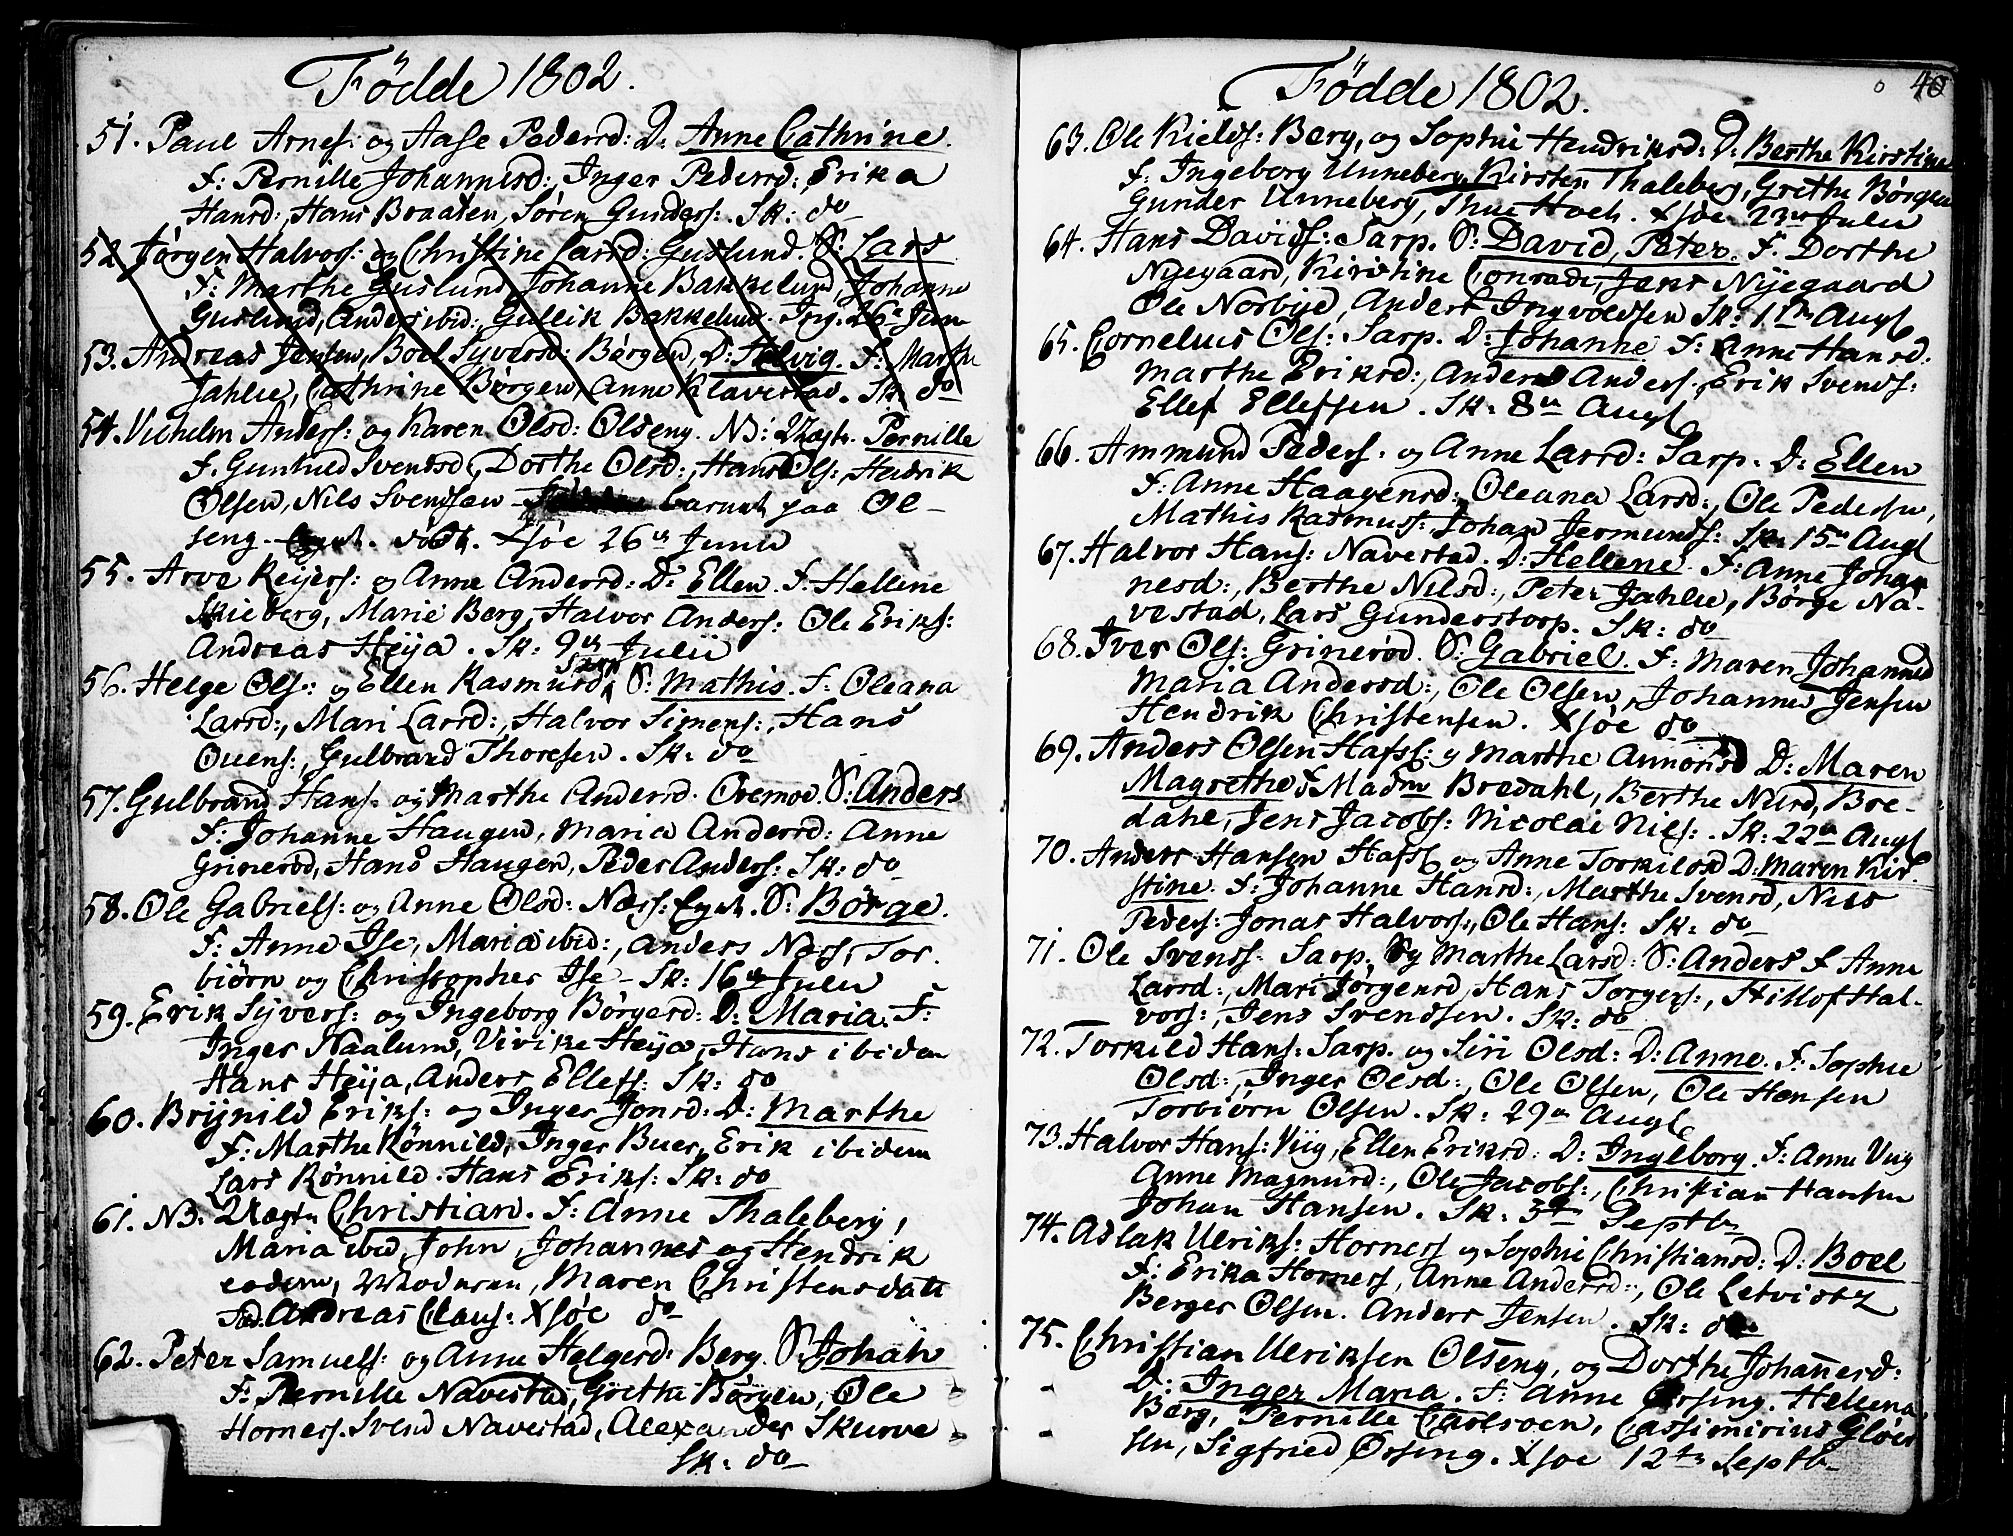 Födde 1802.
51. Paul Arnes: og Aase Pedersd: D: Anne Cathrine.
F: Pernille Johannesd:, Inger Pedersd:, Erika
Hansd:, Hans Braaten, Søren Gunders:. Sk: do
52. Jørgen Halvors: og Christine Larsd: Guslund. S: Lars
F: Marthe Guslund, Johanne Bakkelund, Johanne
Guslund, Anders ibid:, Gullik Bakkelund. Ing. 26de Juni
53. Andreas Jensen, Boel Syversd: Børgen, D: Helvig. F: Marthe
Jahlie, Cathrine Børgen, Anne Klavestad. Sk: do
54. Vilhelm Anders: og Karen Olsd: Olseng. NB: Uægte Pernille
F. Gunhild Svendsd, Dorthe Olsd:, Hans Ols:, Hendrik
Olsen, Nils Svendsen barnet paa Ol-
seng. födt. Xsöe 26de Junii
55. Arve Reijers: og Anne Andersd: D: Ellen. F: Hellene
Skieberg, Marie Berg, Halvor Anders: Ole Eriks:
Andreas Heija. Sk: 9de Julii
56. Helge Ols: og Ellen Rasmusd Sarp S: Mathis. F: Oleana
Larsd:, Mari Larsd:, Halvor Simens:, Hans
Ouens:, Gulbrand Thoresen. Sk: do
57. Gulbrand Hans: og Marthe Andersd. Oremoe. S: Anders
F: Johanne Haugen, Maria Andersd: Anne
Grinerød, Hans Haugen, Peder Anders: Sk: do
58. Ole Gabriels: og Anne Olsd: Næss: Eget. S: Børge.
F: Anne Ise, Maria ibid:, Anders Næss, Tor-
biørn og Christopher Ise - Sk: 16de Julii
59. Erik Syvers: og Ingeborg Børgersd: D: Maria. F:
Inger Naalum, Vivike Heija, Hans ibidem
Hans Heija, Anders Ellefs: Sk: do
60. Brynild Eriks: og Inger Jonsd: D: Marthe
F: Marthe Rønnild, Inger Buer, Erik ibidem
Lars Rønnild. Hans Eriks: Sk: do
61. NB: Uægte Christian. F: Anne Thaleberg,
Maria ibid, John, Johannes og Hendrik
eodem, Moderen, Maren Christensdatt
Fad. Andreas Claus: Xsöe do
62. Peter Samuels: og Anne Helgersd: Berg. S: Johan
F: Pernille Navestad, Grethe Børgen, Ole
Horness. Svend Navestad, Alexander Skurve
Sk: do
Födde 1802.
40
63. Ole Kields: Berg, og Sophie Hendriksd: D: Berthe Kirstine
F: Ingeborg Unneberg, Kirsten Thaleberg, Grethe Børgen
Gunder Unneberg, Thue Hoel. Xsöe 23de Julii
64. Hans Davids: Sarp. S: David, Peter. F: Dorthe
Nyegaard, Kiristine Conradi, Jens Nyegaard
Ole Norbye, Anders Ingvoldsen Sk: 1ste Augs
65. Cornelius Ols: Sarp. D: Johanne F: Anne Hansd.
Marthe Eriksd:, Anders Anders:, Erik Svends:
Ellef Ellefsen. Sk: 8de Augs
66. Ammund Peders: og Anne Larsd: Sarp. D: Ellen
F: Anne Haagensd: Oleana Larsd:, Ole Pedersen,
Mathis Rasmuss: Johan Jermunds: Sk: 15de Augs
67. Halvor Hans: Navestad. D: Hellene. F: Anne Johan
nesd:, Berthe Nilsd:, Peter Jahlie, Børge Na-
vestad, Lars Gunderstorp. Sk: do
68. Iver Ols: Grinerød. S: Gabriel. F: Maren Johannesd
Maria Andersd:, Ole Olsen, Johannes Jensen
Hendrik Christensen. Xsöe do
69. Anders Olsen Hafsl: og Marthe Ammonsd D: Maren
Magrethe F Madm Bredahl, Berthe Nilsd, Bre-
dahl, Jens Jacobs: Nicolai Nils:. Sk: 22de Augs
70. Anders Hansen Hafsl og Anne Torkilsd D: Maren Kir-
stine. F: Johanne Hansd:, Marthe Svensd, Nils
Peders: Jonas Halvors:, Ole Hans: Sk: do
71. Ole Svends: Sarp. og Marthe Larsd: S: Anders F Anne
Larsd:, Mari Jørgensd, Hans Torgers:, Hillof Hal-
vors:, Jens Svendsen. Sk: do
72. Torkild Hans: Sarp. og Siri Olsd: D: Anne. F: Sophie
Olsd:, Inger Olsd:, Ole Olsen, Ole Hansen
Torbiørn Olsen. Sk: 29de Augs
73. Halvor Hans: Viig, Ellen Eriksd: D: Ingeborg. F: Anne Viig
Anne Magnusd:, Ole Jacobs:, Christian Hansen
Johan Hansen. Sk: 5te Septb
74. Aslak Ulriks: Horness og Sophie Christiansd: D: Boel
F: Erika Horness, Anne Andersd:, Ole Letvistz
Berger Olsen. Anders Jensen. Sk: do
75. Christian Ulriksen Olseng, og Dorthe Johannesd:
D: Inger Maria. F: Anne Ørsing, Hellena
Berg, Pernille Carlsøen, Cassimirius Gløer
sen, Sigfried Ørsing. Xsöe 12te Septb